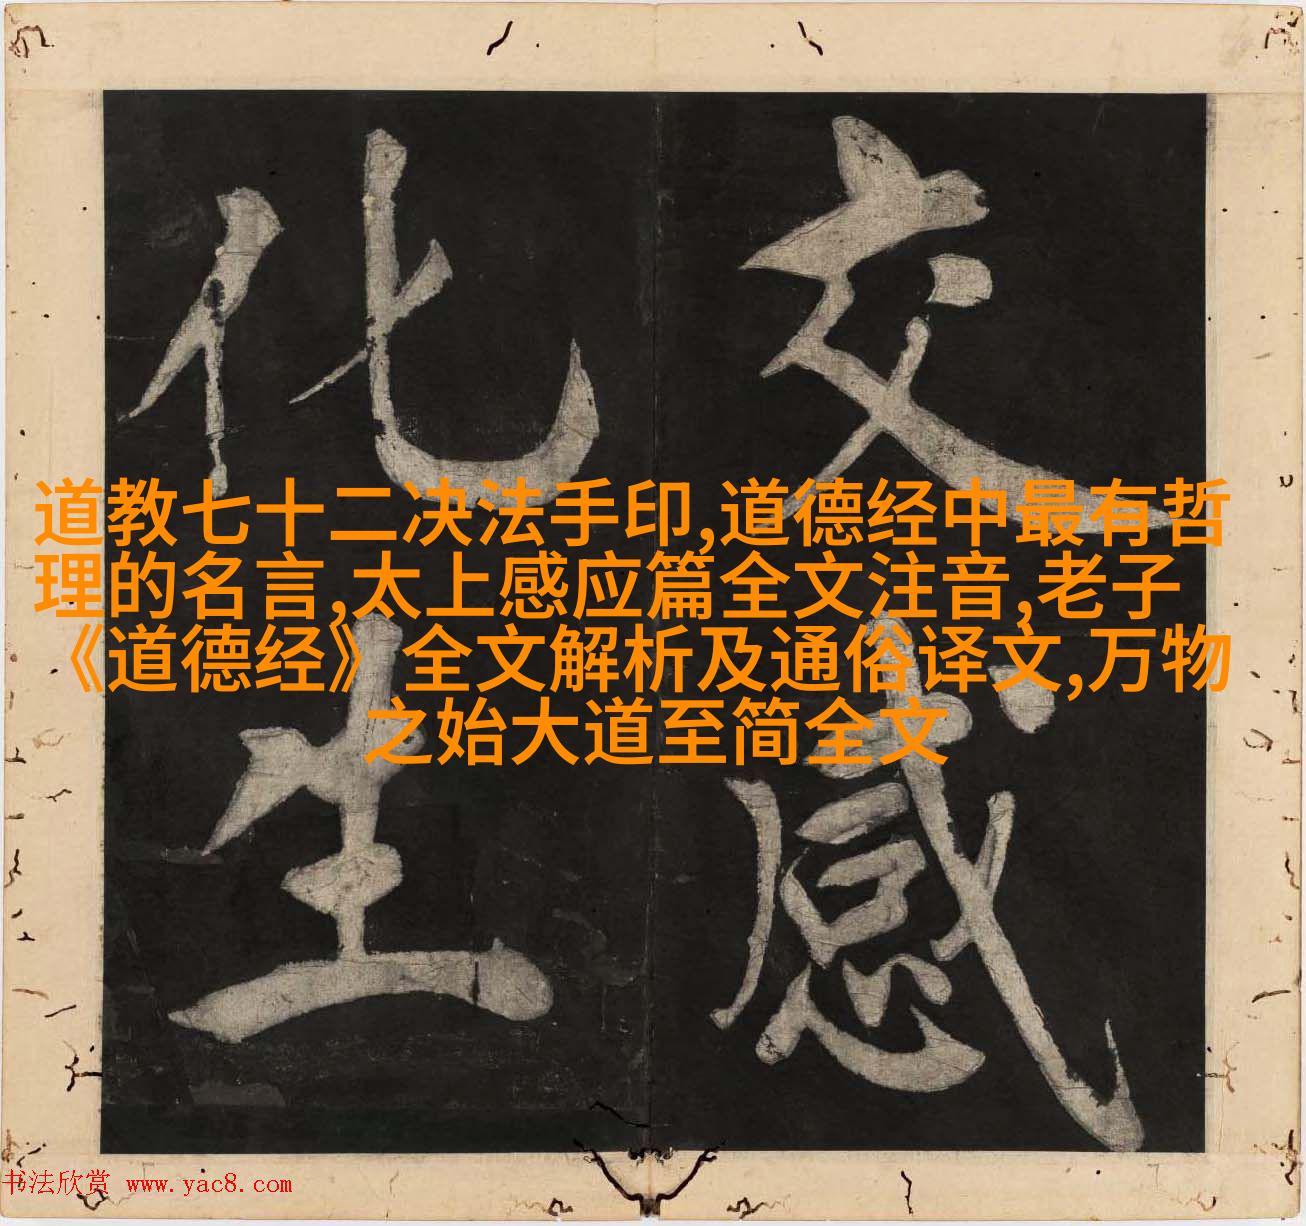 交感
化生
道教七十二决法手印,道德经中最有哲
理的名言,太上感应篇全文注音,老子
《道德经》全文解析及通俗译文,万物
之始大道至简全文
书法欣赏 www.yac8.com